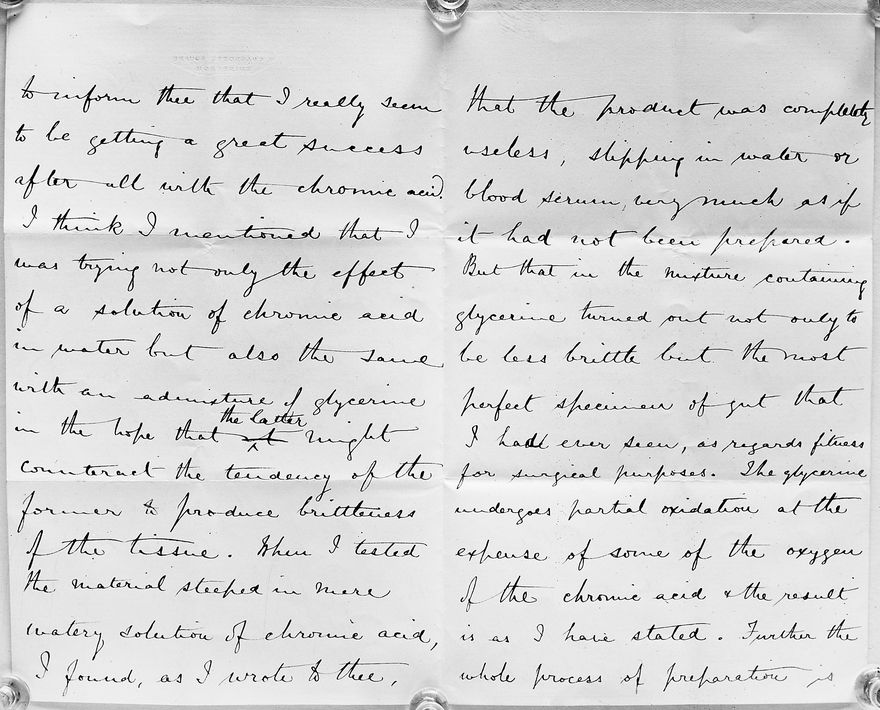 to inform thee that I really seem
to be getting a great success
after all with the chromic acid.
I think I mentioned that I
was trying not only the effect
of a solution of chromic acid
in water but also the same
with an admixture of glycerine
the latter
in the hope that it might
counteract the tendency of the
former to produce brittleness
of the tissue. When I tested
the material steeped in mere
watery solution of chromic acid,
I found, as I wrote to thee,
that the product was completely
useless, slipping in water or
blood serum, very much as if
it had not been prepared.
But that in the mixture containing
glycerine turned out not only to
be less brittle but the most
perfect specimen of gut that
I had ever seen, as regards fitness
for surgical purposes. The glycerine
undergoes partial oxidation at the
expense of some of the oxygen
of the chromic acid & the result
is as I have stated. Further the
whole process of preparation is